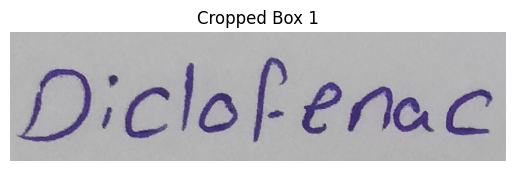 Cropped Box 1
Diclofenac